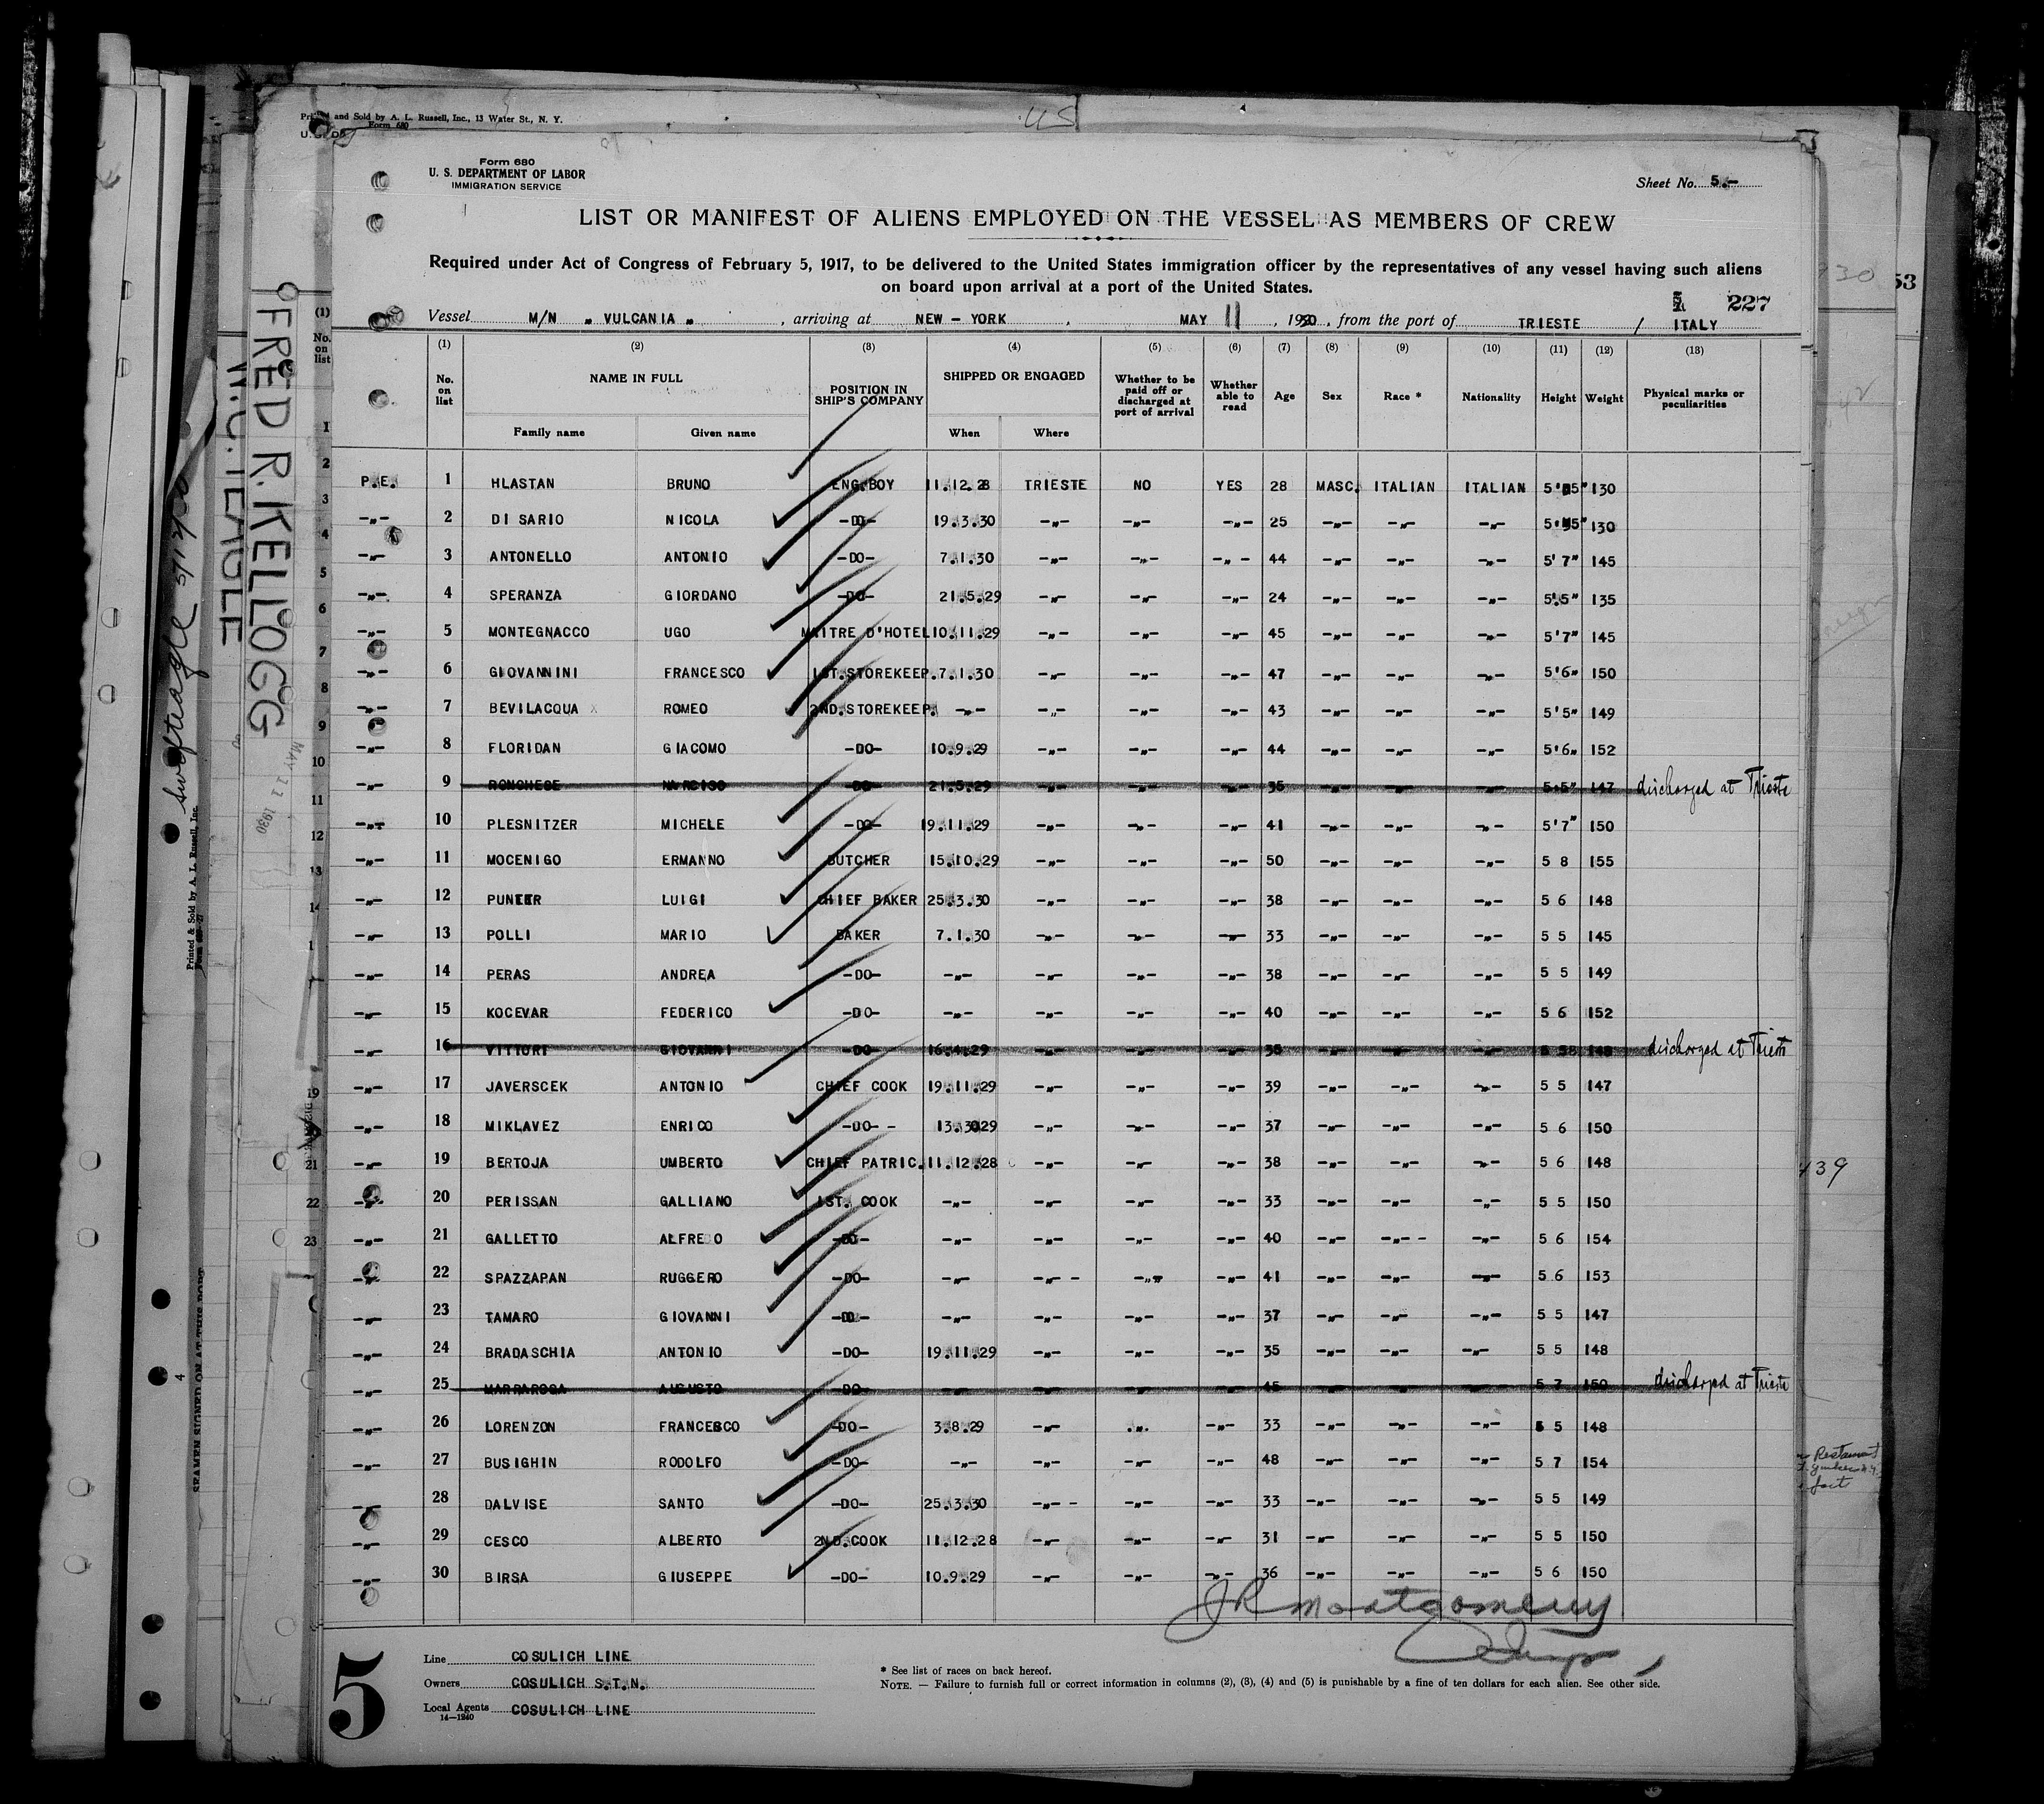 Printed and Sold by A. L. Russell, Inc., 13 Water St., N. Y.
Form 680
US
Form 680
U. S. DEPARTMENT OF LABOR
IMMIGRATION SERVICE
Sheet No. 5.-
LIST OR MANIFEST OF ALIENS EMPLOYED ON THE VESSEL AS MEMBERS OF CREW
Required under Act of Congress of February 5, 1917, to be delivered to the United States immigration officer by the representatives of any vessel having such aliens
on board upon arrival at a port of the United States.
227
Vessel M/N „ VULCANIA „ , arriving at NEW-YORK , MAY 11 , 1930 , from the port of TRIESTE / ITALY
(1) (2) (3) (4) (5) (6) (7) (8) (9) (10) (11) (12) (13)
No. on list NAME IN FULL POSITION IN SHIP'S COMPANY SHIPPED OR ENGAGED Whether to be paid off or discharged at port of arrival Whether able to read Age Sex Race * Nationality Height Weight Physical marks or peculiarities
Family name Given name When Where
P.E. 1 HLASTAN BRUNO ENG.BOY 11.12.28 TRIESTE NO YES 28 MASC. ITALIAN ITALIAN 5'5" 130
-"- 2 DI SARIO NICOLA -DO- 19.3.30 -"- -"- -"- 25 -"- -"- -"- 5'5" 130
-"- 3 ANTONELLO ANTONIO -DO- 7.1.30 -"- -"- -"- 44 -"- -"- -"- 5'7" 145
-"- 4 SPERANZA GIORDANO -DO- 21.5.29 -"- -"- -"- 24 -"- -"- -"- 5'5" 135
-"- 5 MONTEGNACCO UGO MAITRE D'HOTEL 10.11.29 -"- -"- -"- 45 -"- -"- -"- 5'7" 145
-"- 6 GIOVANNINI FRANCESCO 1ST.STOREKEEP. 7.1.30 -"- -"- -"- 47 -"- -"- -"- 5'6" 150
-"- 7 BEVILACQUA ROMEO 2ND.STOREKEEP. -"- -"- -"- -"- 43 -"- -"- -"- 5'5" 149
-"- 8 FLORIDAN GIACOMO -DO- 10.9.29 -"- -"- -"- 44 -"- -"- -"- 5'6" 152
-"- 9 RONCHESE NARCISO -DO- 21.5.29 -"- -"- -"- 35 -"- -"- -"- 5'5" 147 discharged at Trieste
-"- 10 PLESNITZER MICHELE -DO- 19.11.29 -"- -"- -"- 41 -"- -"- -"- 5'7" 150
-"- 11 MOCENIGO ERMANNO BUTCHER 15.10.29 -"- -"- -"- 50 -"- -"- -"- 5 8 155
-"- 12 PUNTER LUIGI CHIEF BAKER 25.3.30 -"- -"- -"- 38 -"- -"- -"- 5 6 148
-"- 13 POLLI MARIO BAKER 7.1.30 -"- -"- -"- 33 -"- -"- -"- 5 5 145
-"- 14 PERAS ANDREA -DO- -"- -"- -"- -"- 38 -"- -"- -"- 5 5 149
-"- 15 KOCEVAR FEDERICO -DO- -"- -"- -"- -"- 40 -"- -"- -"- 5 6 152
-"- 16 VITTORI GIOVANNI -DO- 16.4.29 -"- -"- -"- -"- -"- -"- 148 discharged at Trieste
-"- 17 JAVERSCEK ANTONIO CHIEF COOK 19.11.29 -"- -"- -"- 39 -"- -"- -"- 5 5 147
-"- 18 MIKLAVEZ ENRICO -DO- - -"- -"- -"- 37 -"- -"- -"- 5 6 150
-"- 19 BERTOJA UMBERTO CHIEF PATRIC. 11.12.28 -"- -"- -"- 38 -"- -"- -"- 5 6 148
-"- 20 PERISSAN GALLIANO 1ST. COOK -"- -"- -"- -"- 33 -"- -"- -"- 5 5 150
-"- 21 GALLETTO ALFREDO -DO- -"- -"- -"- -"- 40 -"- -"- - -"- 5 6 154
-"- 22 SPAZZAPAN RUGGERO -DO- -"- -"- - -"- -"- 41 -"- -"- -"- 5 6 153
-"- 23 TAMARO GIOVANNI -DO- -"- -"- -"- -"- 37 -"- -"- -"- 5 5 147
-"- 24 BRADASCHIA ANTONIO -DO- 19.11.29 -"- -"- -"- 35 -"- -"- -"- 5 5 148
-"- 25 AUGUSTO -DO- -"- -"- -"- -"- 45 -"- -"- -"- 5 7 150 discharged at Trieste
-"- 26 LORENZON FRANCESCO -DO- 3.8.29 -"- ." . -"- 33 -"- -"- -"- 5 5 148
-"- 27 BUSIGHIN RODOLFO -DO- -"- -"- -"- -"- 48 -"- -"- -"- 5 7 154
-"- 28 DALVISE SANTO -DO- 25.3.30 -"- - -"- -"- 33 -"- -"- -"- 5 5 149
-"- 29 CESCO ALBERTO 2ND.COOK 11.12.28 -"- -"- -"- 31 -"- -"- -"- 5 5 150
-"- 30 BIRSA GIUSEPPE -DO- 10.9.29 -"- -"- -"- 36 -"- -"- -"- 5 6 150
JR Montgomery
5
Line COSULICH LINE
Owners COSULICH S.T.N.
Local Agents COSULICH LINE
14-1240
* See list of races on back hereof.
NOTE. — Failure to furnish full or correct information in columns (2), (3), (4) and (5) is punishable by a fine of ten dollars for each alien. See other side.
FRED R. KELLOGG
W.C. TEAGLE
MAY 11 1930
Printed & Sold by A. L. Russell, Inc.
SEAMEN SIGNED ON AT THIS PORT
4
53
439
Restaurant